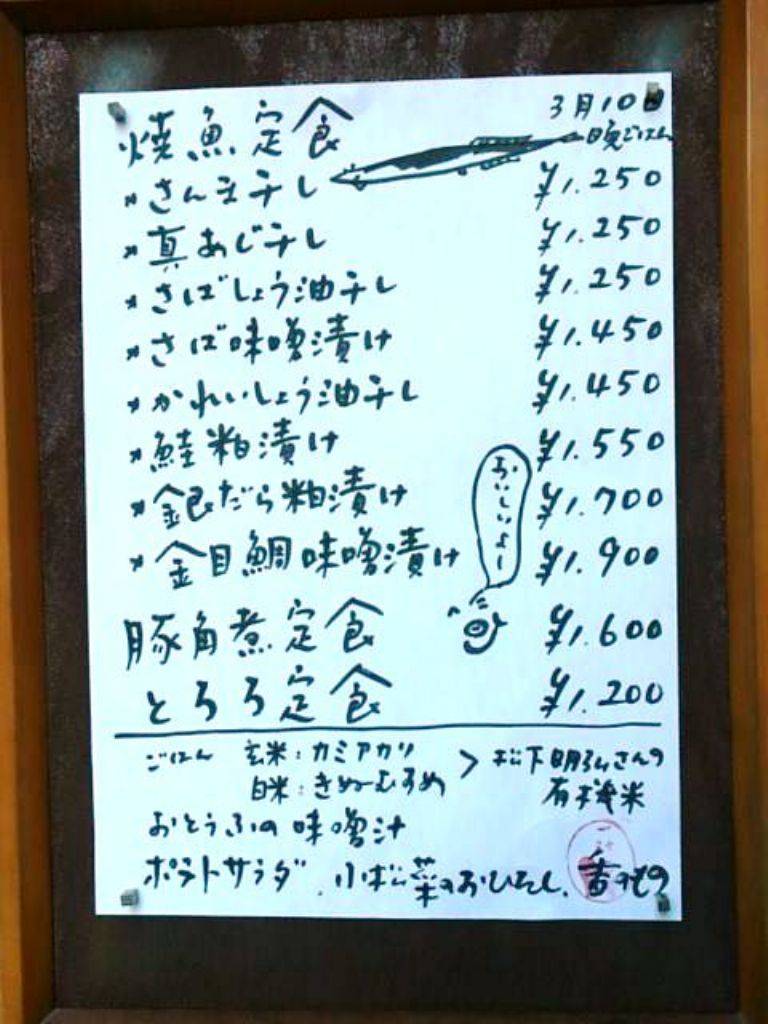 焼魚定食 3月10日
昼ごはん
*さんま干し ¥1.250
*真あじ干し ¥1.250
*さばしょう油干し ¥1.250
*さば味噌漬け ¥1.450
*かれいしょう油干し ¥1.450
*鮭粕漬け ¥1.550
*銀だら粕漬け ¥1.700
*金目鯛味噌漬け ¥1.900
おいしいよー
豚角煮定食 ¥1.600
とろろ定食 ¥1.200
ごはん 玄米:カミアカリ > 松下明弘さんの
白米:きぬむすめ 有機米
おとうふの味噌汁
ポテトサラダ、小松菜のおひたし、香のもの